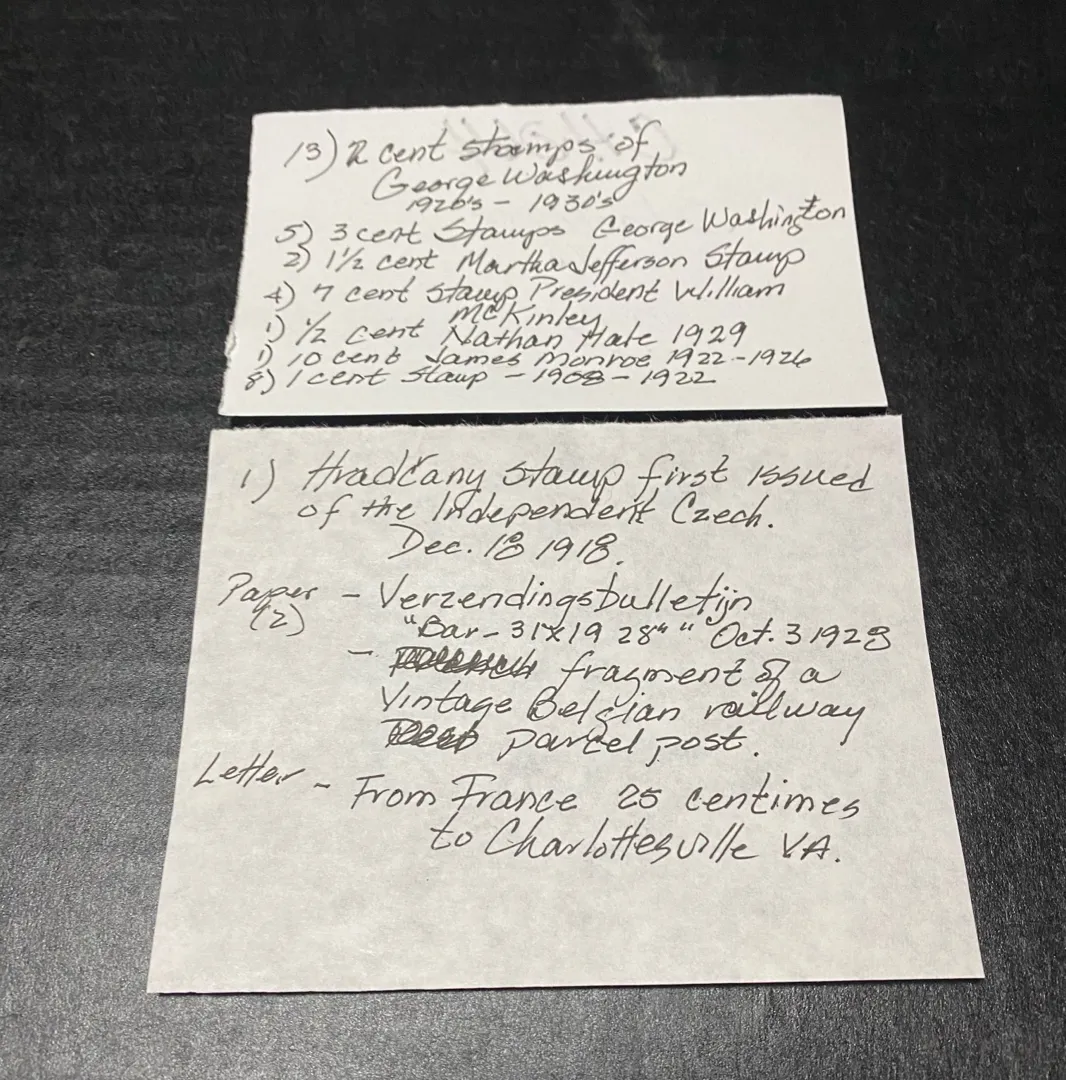 13) 2 cent stamps of
George Washington
1920's - 1930's
5) 3 cent Stamps George Washington
2) 1 1/2 cent Martha Jefferson Stamp
4) 7 cent stamp President William
McKinley
1) 1/2 cent Nathan Hale 1929
1) 10 cent James Monroe 1922-1926
8) 1 cent stamp - 1908 - 1922
1) Hradčany stamp first issued
of the Independent Czech.
Dec. 18 1918.
Paper - Verzendingsbulletijn
(2) "Bar - 31x19 28" " Oct. 3 1928
- fragment of a
Vintage Belgian railway
parcel post.
Letter - From France 25 centimes
to Charlottesville VA.